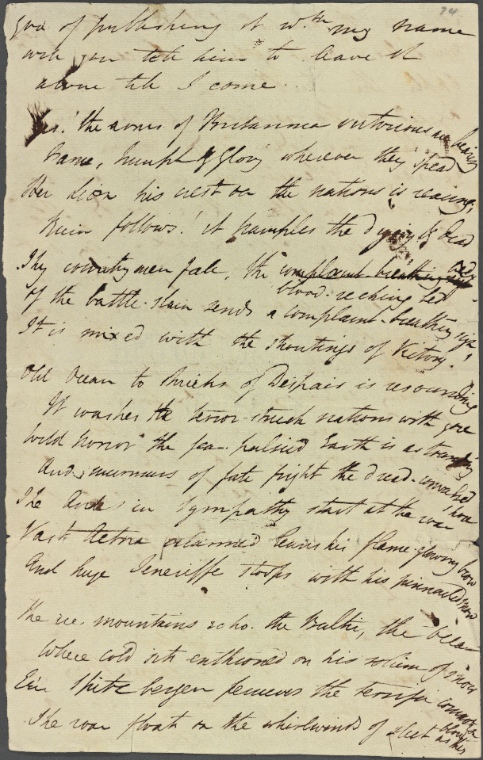 24
God of publishing it wth my name
will you tell him to leave it
alone till I come.
Yes! the arms of Britannia victorious are bearing
Fame, triumph & Glory wherever they spread
Her Lion his crest oer the nations is rearing
Ruin follows! it tramples the dying & dead
Thy countrymen fall, the blood-reeking bed
Of the battle-slain sends a complaint-breathing sigh
It is mixed with the shoutings of Victory!
Old Ocean to shrieks of Despair is resounding
It washes the terror-struck nations with gore
Wild horror the fear-palsied Earth is astounding
And murmurs of fate fright the dread-convulsed shore
The Andes in sympathy start at the roar
Vast Aetna alarmed leans his flame-glowing brow
And huge Teneriffe stoops with his pinnacled snow
The ice-mountains echo the Baltic, the Ocean
Where cold sits enthroned on his solium of snow
Even Spitzbergen perceives the terrific commotion
The roar floats on the whirlwinds of sleet as they blow